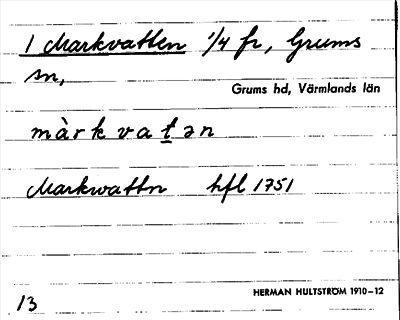 1 Markvatten 1/4 fr, Grums
sn,
Grums hd, Värmlands län
màrkvatən
Markwattn hfl 1751
HERMAN HULTSTRÖM 1910–12
13